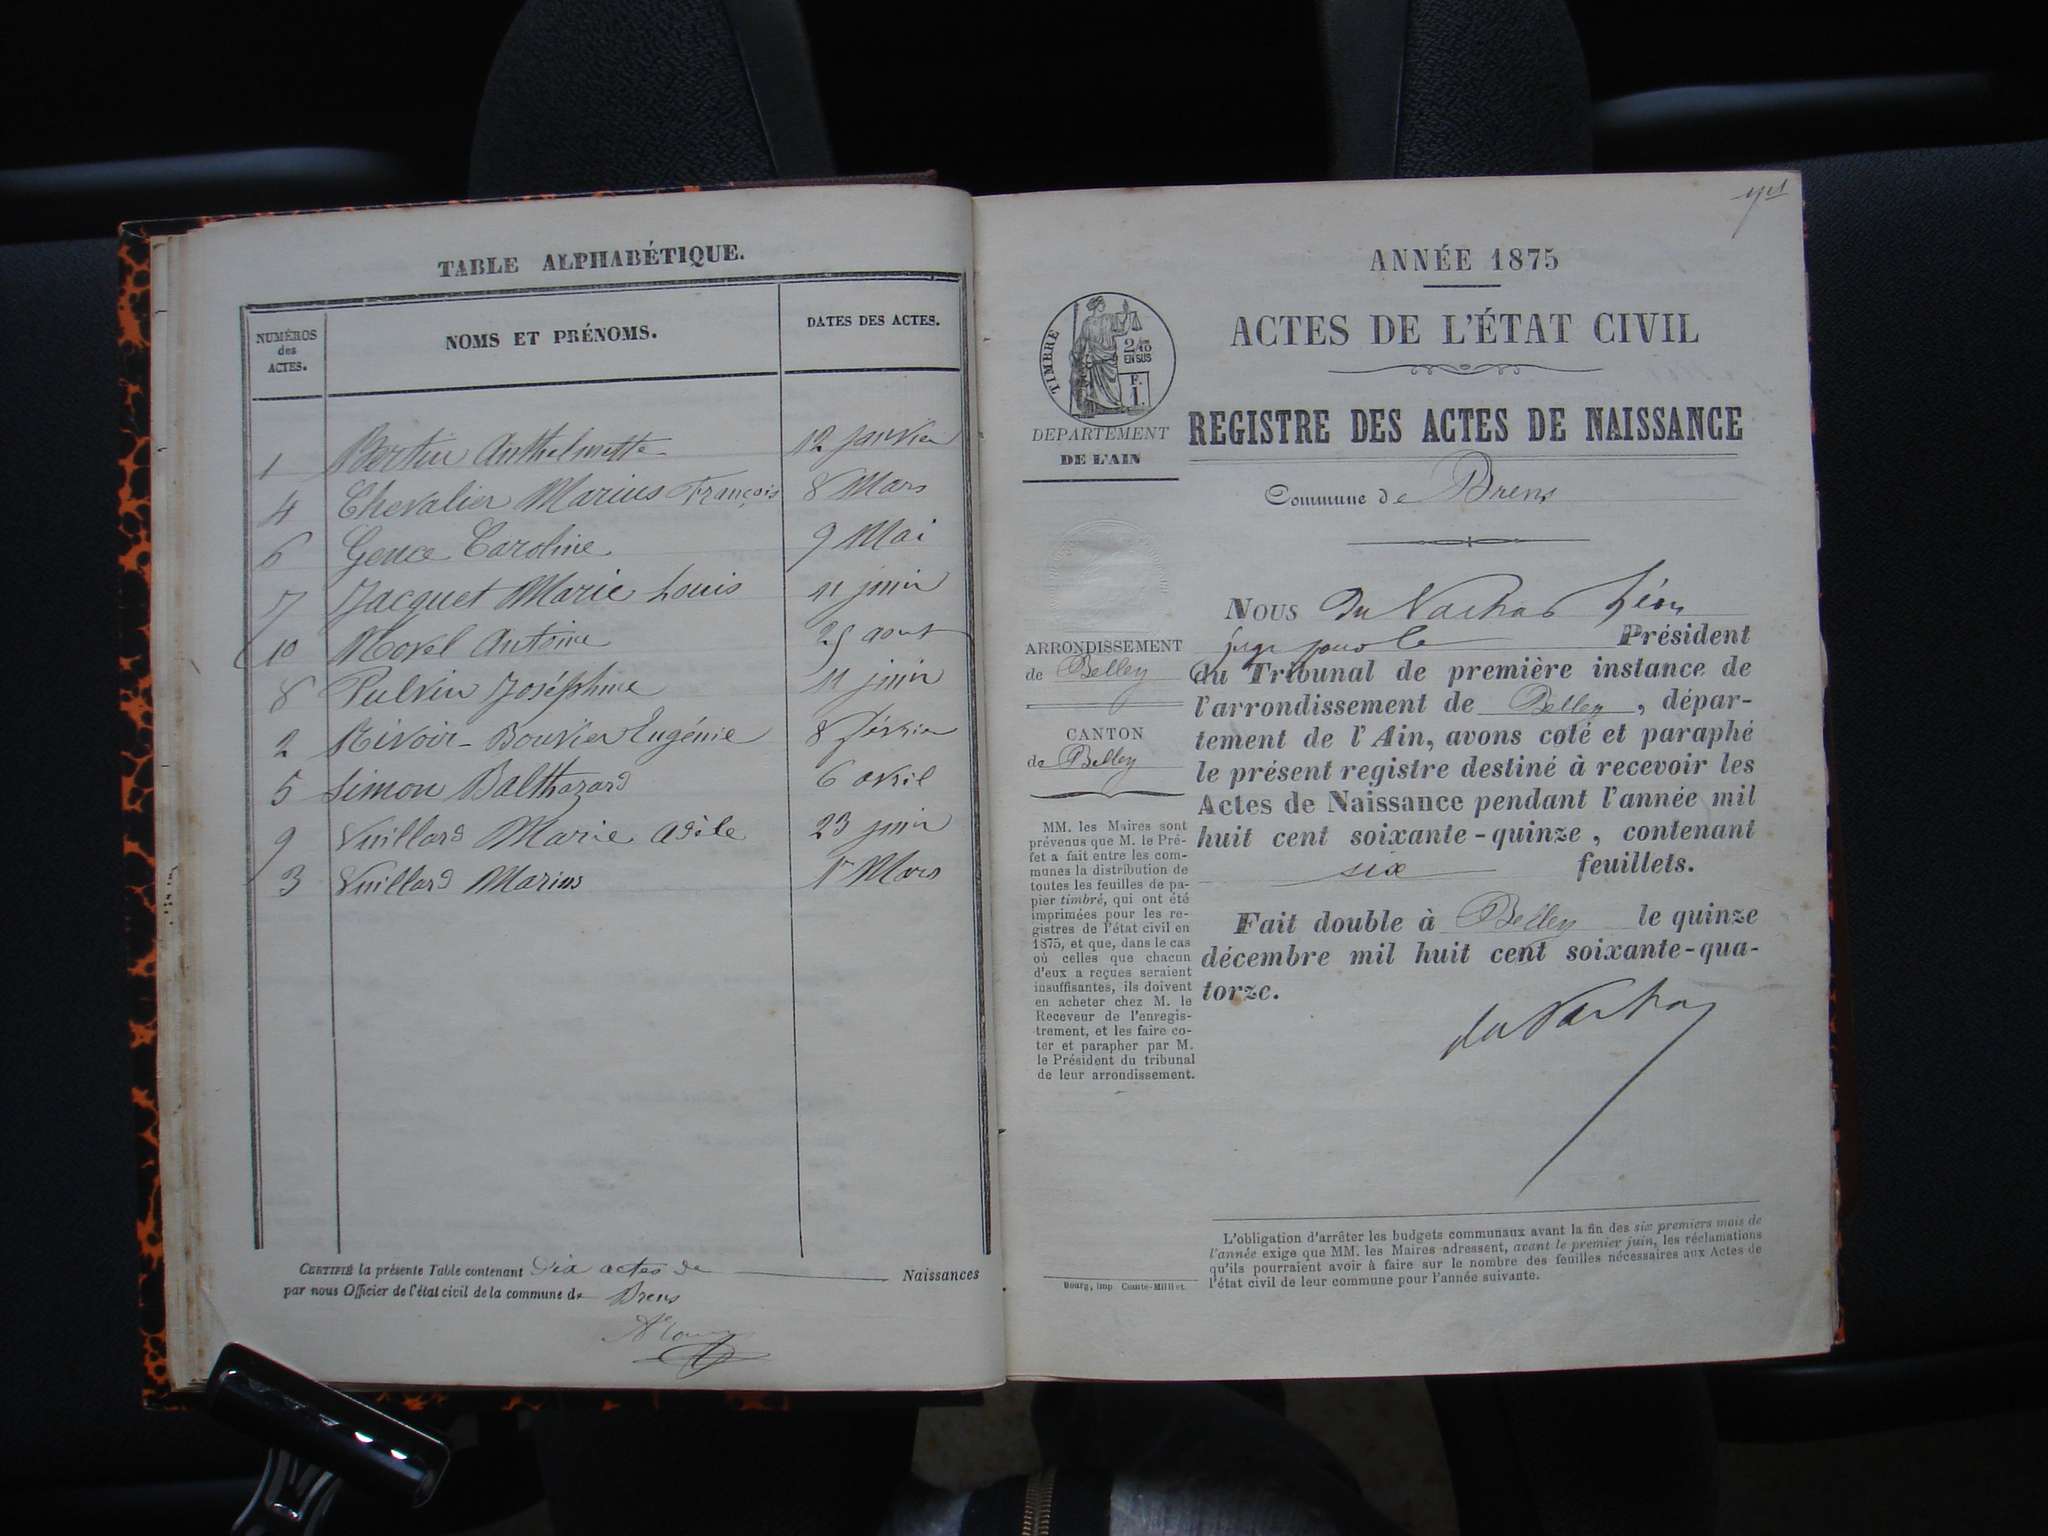 TABLE ALPHABÉTIQUE.
NUMÉROS des ACTES.
NOMS ET PRÉNOMS.
DATES DES ACTES.
1 Bertin Anthelmette 12 janvier
4 Chevalier Marius François 8 Mars
6 Gence Caroline 9 Mai
7 Jacquet Marie Louis 11 juin
10 Morel Antoine 25 aout
8 Pulvin Joséphine 11 juin
2 Rivoir-Bouvier Eugénie 8 février
5 Simon Balthazard 6 avril
9 Vuillard Marie Adèle 23 juin
3 Vuillard Marius 1r Mars
CERTIFIÉ la présente Table contenant dix actes de Naissances
par nous Officier de l'état civil de la commune de Brens
ANNÉE 1875
ACTES DE L'ÉTAT CIVIL
TIMBRE
2/10
EN SUS
F.
1.
DEPARTEMENT
DE L'AIN
REGISTRE DES ACTES DE NAISSANCE
Commune de Brens
ARRONDISSEMENT
de Belley
CANTON
de Belley
MM. les Maires sont
prévenus que M. le Pré-
fet a fait entre les com-
munes la distribution de
toutes les feuilles de pa-
pier timbré, qui ont été
imprimées pour les re-
gistres de l'état civil en
1875, et que, dans le cas
où celles que chacun
d'eux a reçues seraient
insuffisantes, ils doivent
en acheter chez M. le
Receveur de l'enregis-
trement, et les faire co-
ter et parapher par M.
le Président du tribunal
de leur arrondissement.
NOUS du Léon
juge pour le Président
du Tribunal de première instance de
l'arrondissement de Belley, dépar-
tement de l'Ain, avons coté et paraphé
le présent registre destiné à recevoir les
Actes de Naissance pendant l'année mil
huit cent soixante-quinze, contenant
six feuillets.
Fait double à Belley le quinze
décembre mil huit cent soixante-qua-
torze.
L'obligation d'arrêter les budgets communaux avant la fin des six premiers mois de
l'année exige que MM. les Maires adressent, avant le premier juin, les réclamations
qu'ils pourraient avoir à faire sur le nombre des feuilles nécessaires aux Actes de
l'état civil de leur commune pour l'année suivante.
Bourg, imp Comte-Milliet.